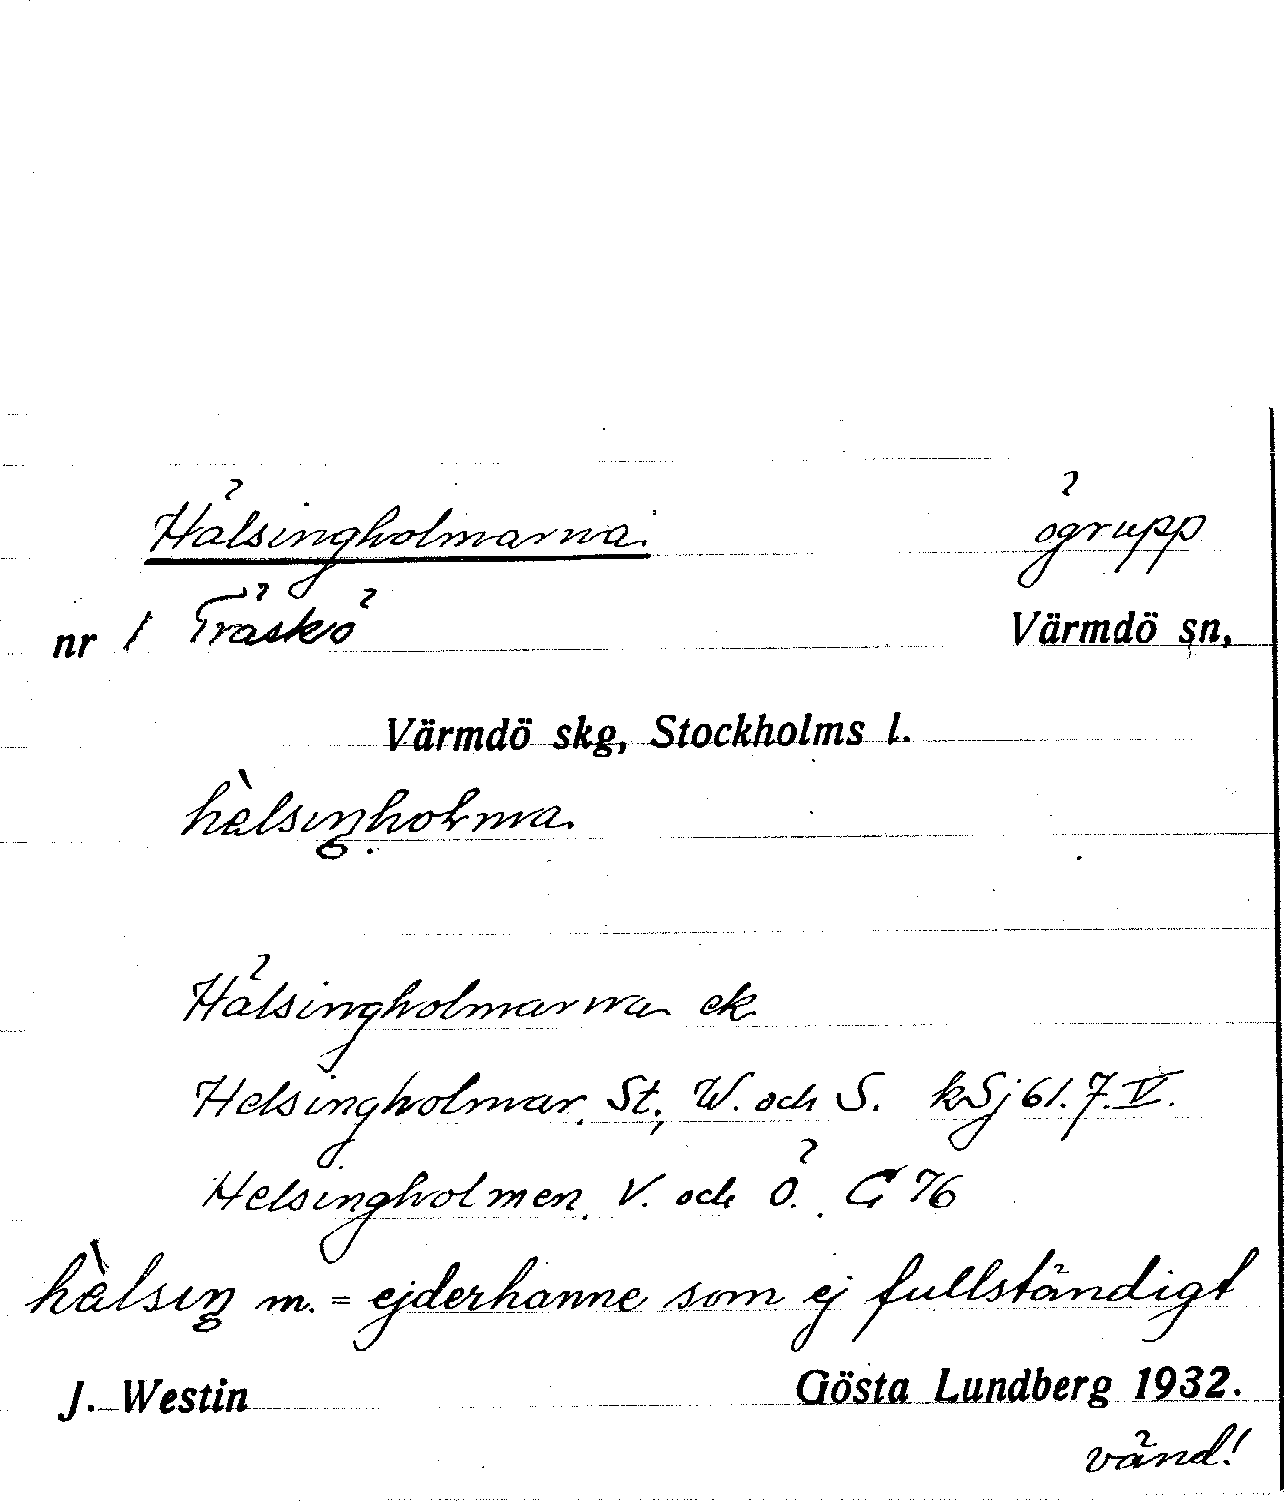 Hälsingholmarna. ögrupp
nr 1 Träskö Värmdö sn,
Värmdö skg, Stockholms l.
hὲlsıŋholma.
Hälsingholmarna ek
Helsingholmar. St, W. och S. kSj 61. 7. V.
Helsingholmen. V. och Ö. G 76
hὲlsıŋ m. = ejderhanne som ej fullständigt
J. Westin Gösta Lundberg 1932.
vänd!